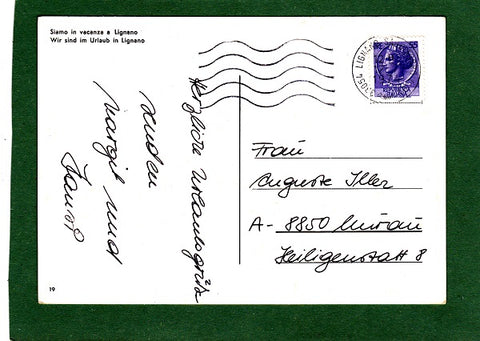 Siamo in vacanza a Lignano
Wir sind im Urlaub in Lignano
Herzliche Urlaubsgrüße
senden
Margit und
33054 LIGNANO
Frau
Auguste Iller
A- 8850 Murau
Heiligenstatt 8
19